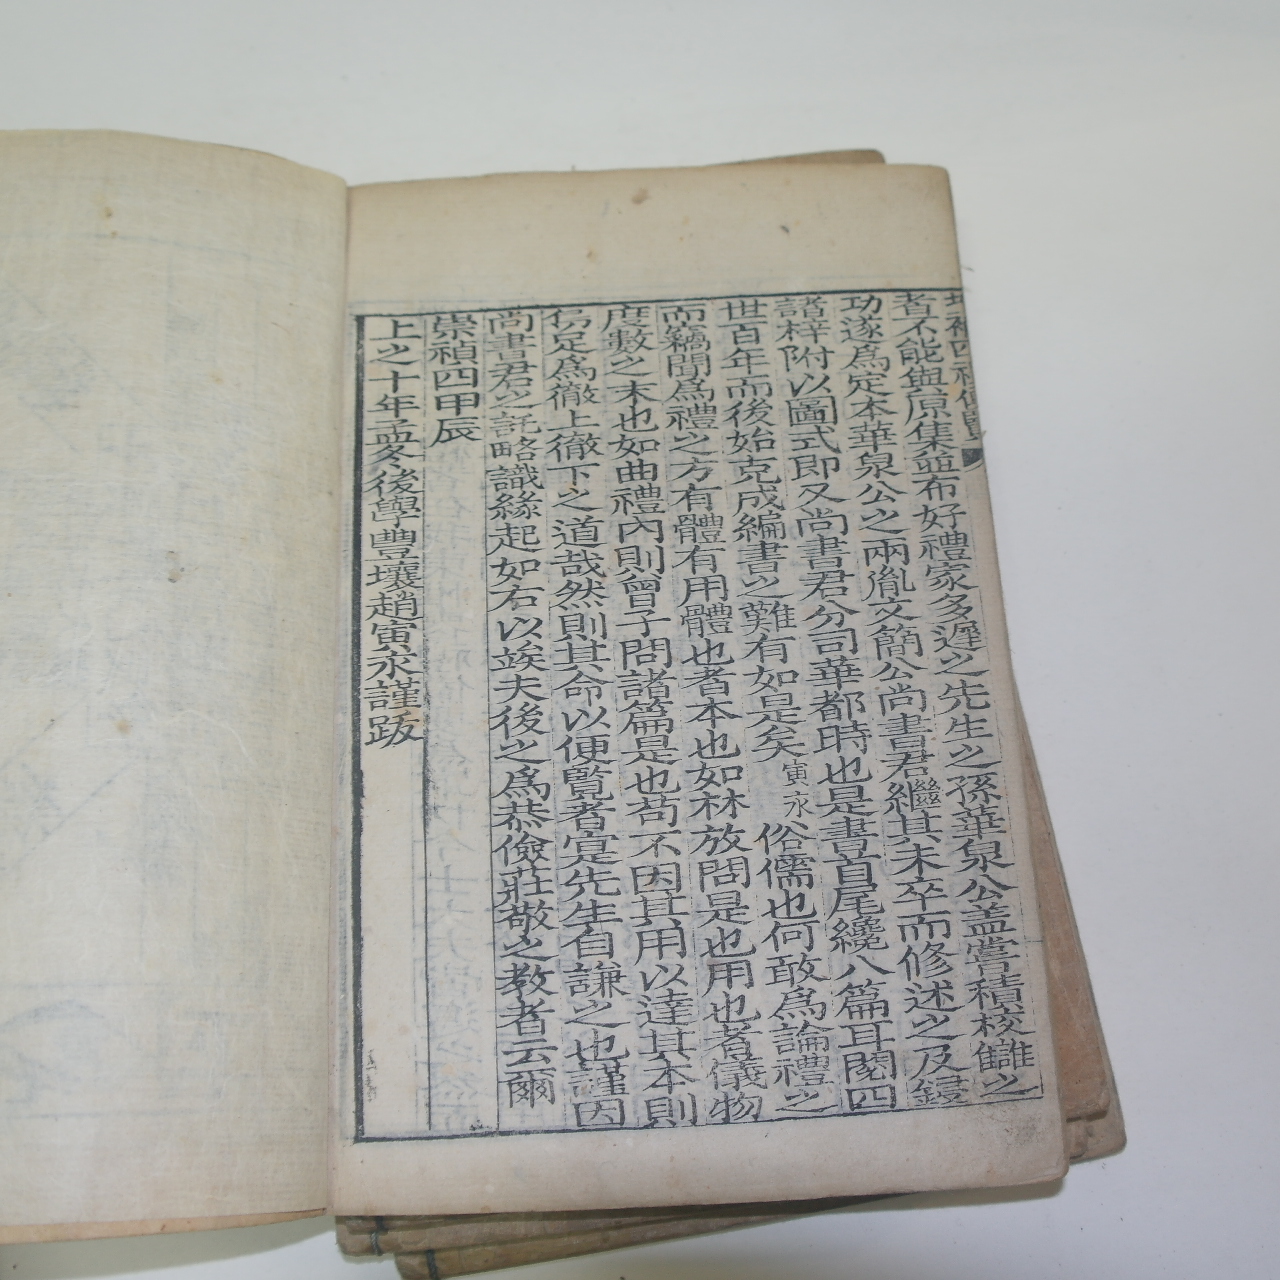 增補四禮便覽
者不能與原集並布好禮家多遲之先生之孫華泉公盖嘗積校讎之
功遂爲定本華泉公之兩胤文簡公尚書君繼其未卒而修述之及鋟
諸梓附以圖式即又尚書君分司華都時也是書首尾纔八篇耳閱四
世百年而後始克成編書之難有如是矣寅永俗儒也何敢爲論禮之
而竊聞爲禮之方有體有用體也者本也如林放問是也用也者儀物
度數之末也如曲禮內則曾子問諸篇是也苟不因其用以達其本則
惡足爲徹上徹下之道哉然則其命以便覽者寔先生自謙之也謹因
尚書君之託略識緣起如右以竢夫後之爲恭儉莊敬之教者云爾
崇禎四甲辰
上之十年孟冬後學豊壤趙寅永謹跋